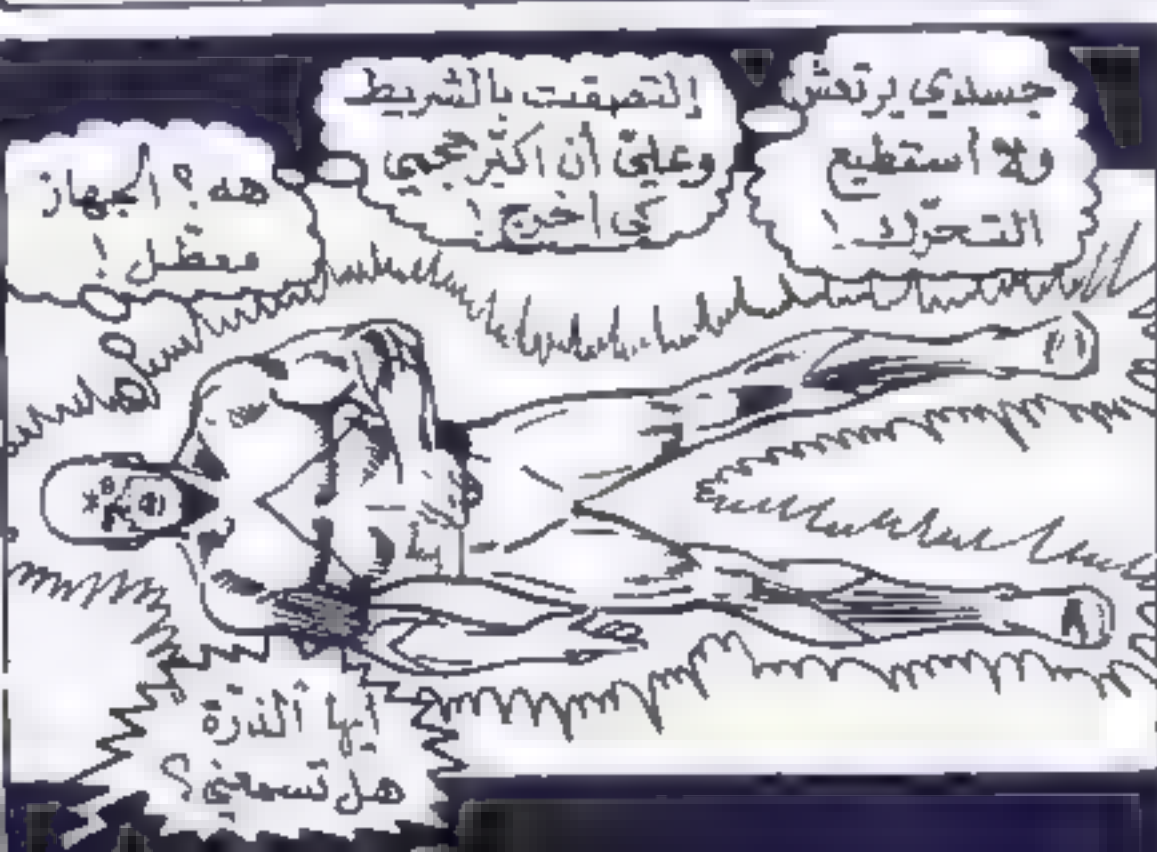 جسدي يرتعش
ولا أستطيع
التحرّك!
إلتصقت بالشريط
وعليّ أن اكبّر حجمي
كى اخرج!
هه؟ الجهاز
معطّل!
ايها الذرّة
هل تسمعني؟